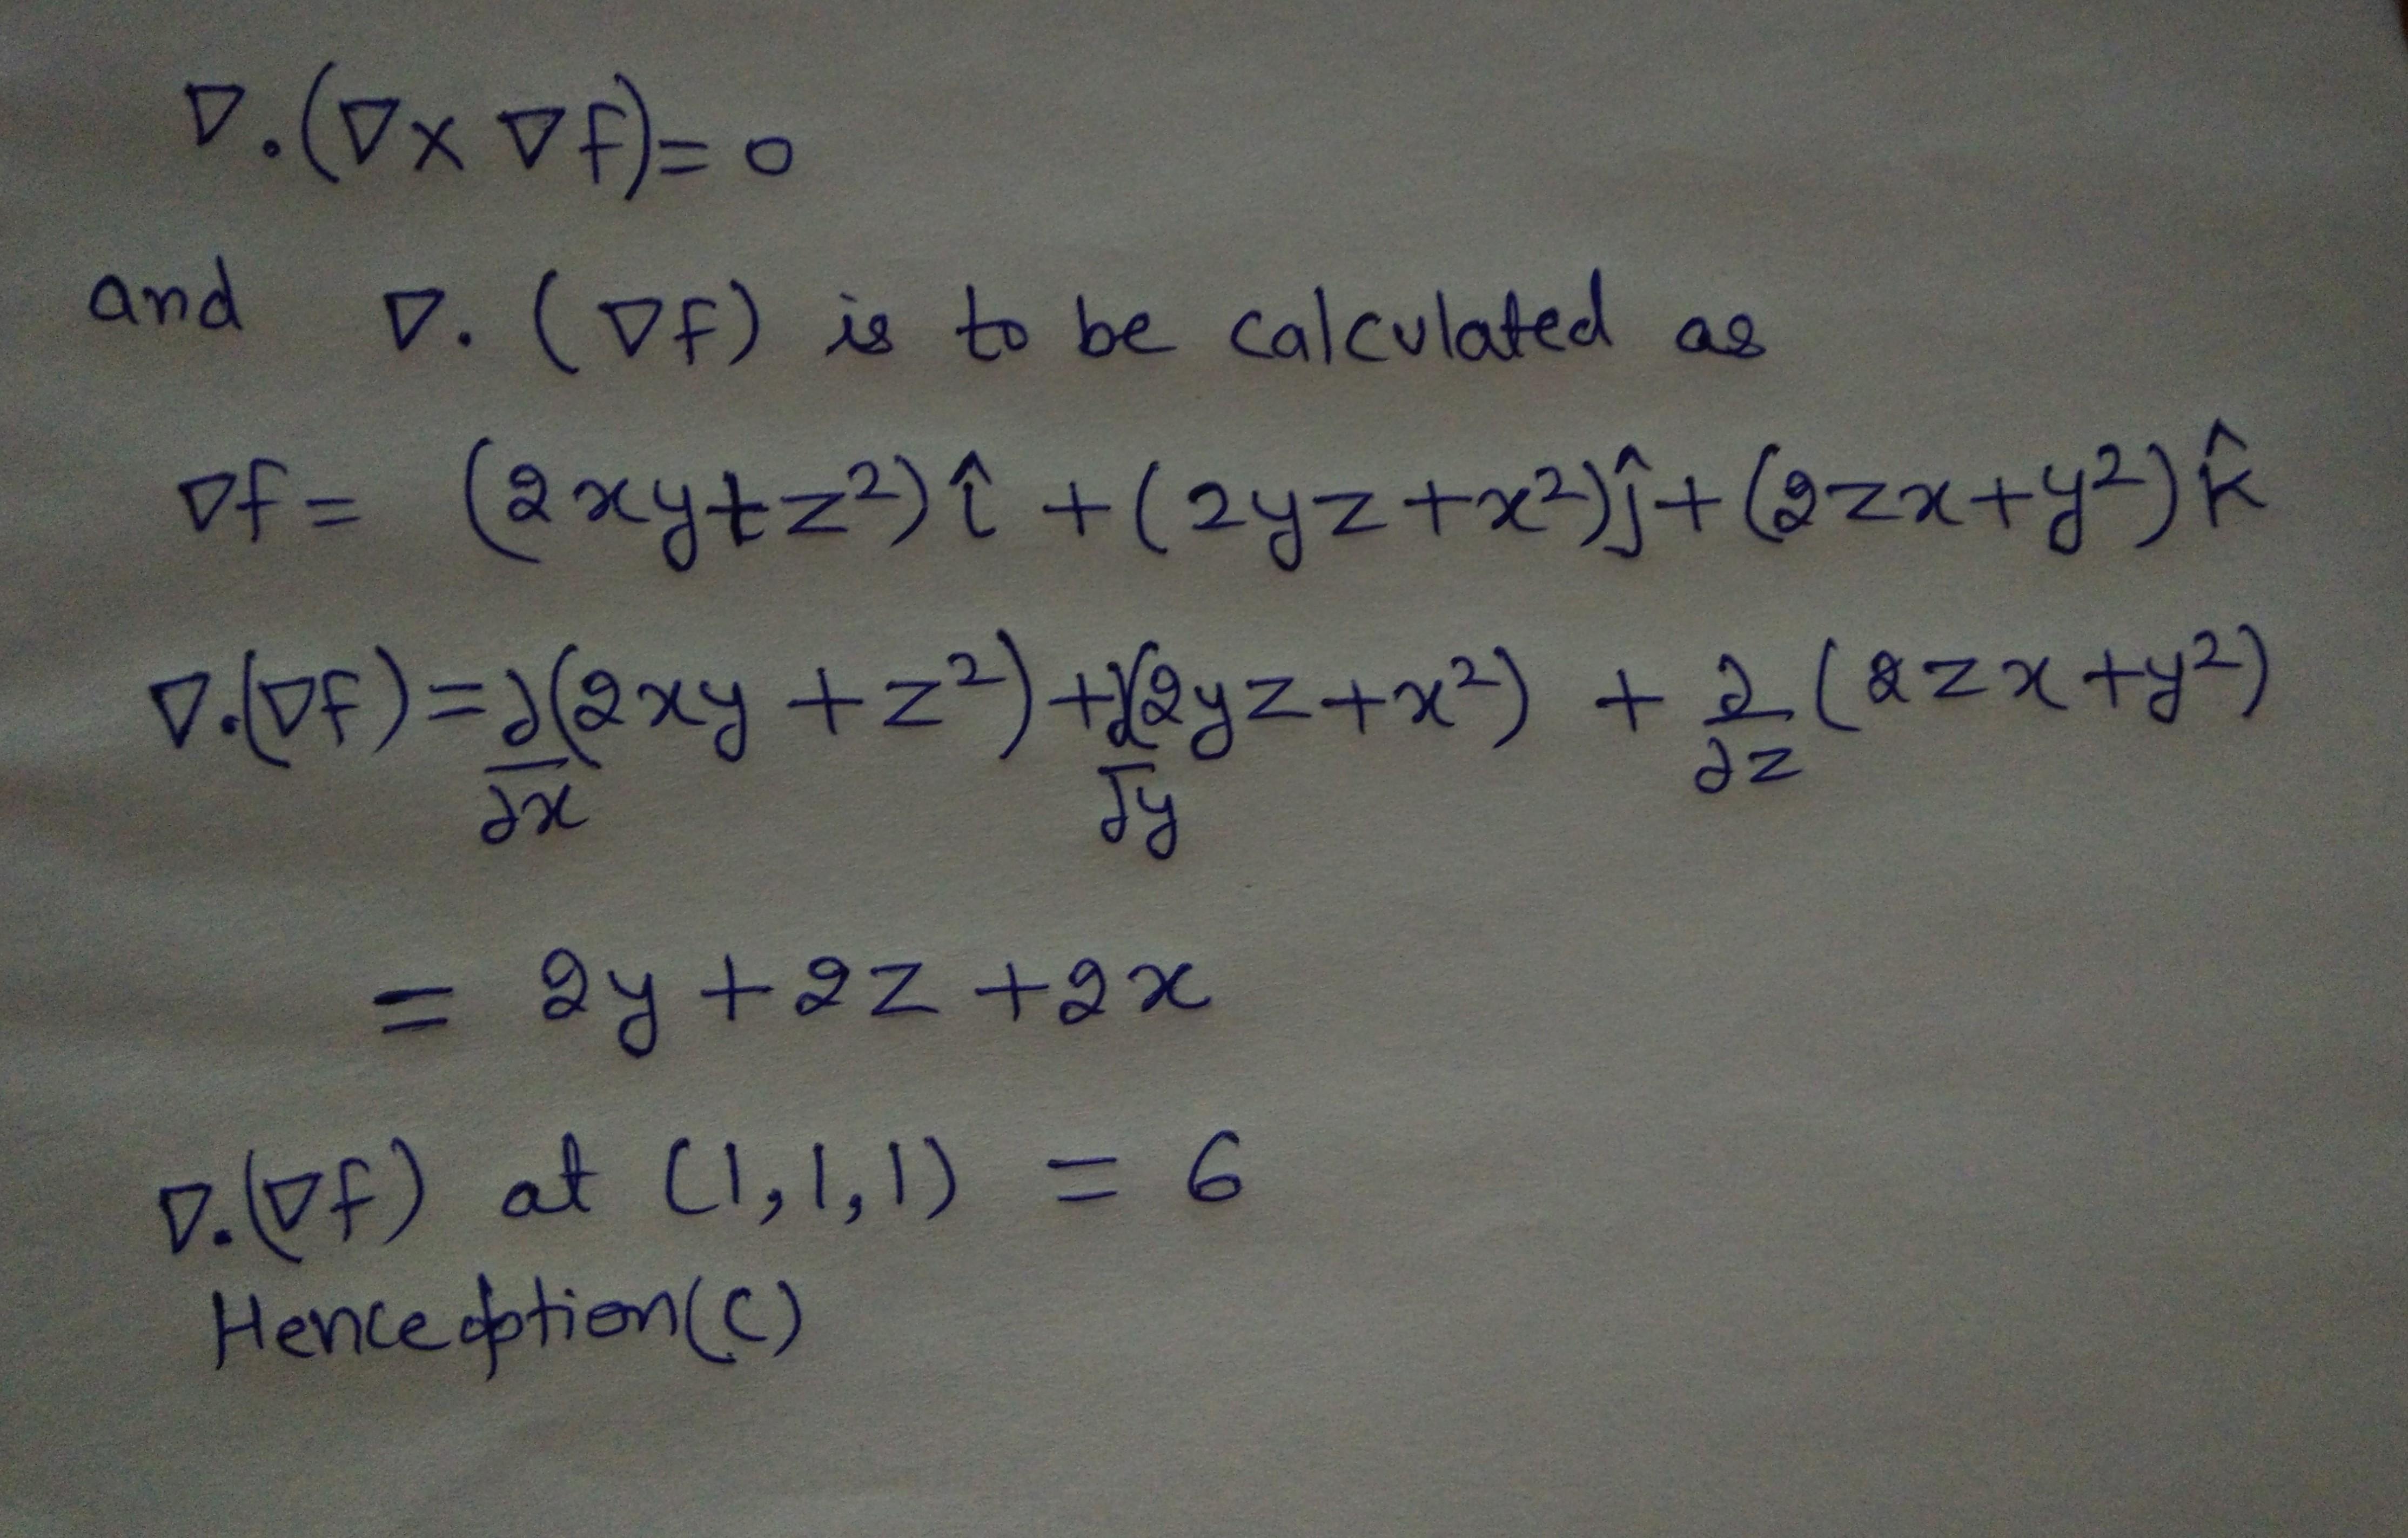 ∇.(∇× ∇f)= 0
and ∇. (∇f) is to be calculated as
∇f = (2xy+z²)î + (2yz+x²)ĵ+(2zx+y²)k̂
∇.(∇f)=∂/∂x(2xy+z²)+∂/∂y(2yz+x²) + ∂/∂z(2zx+y²)
= 2y+2z+2x
∇.(∇f) at (1,1,1) = 6
Hence option(C)